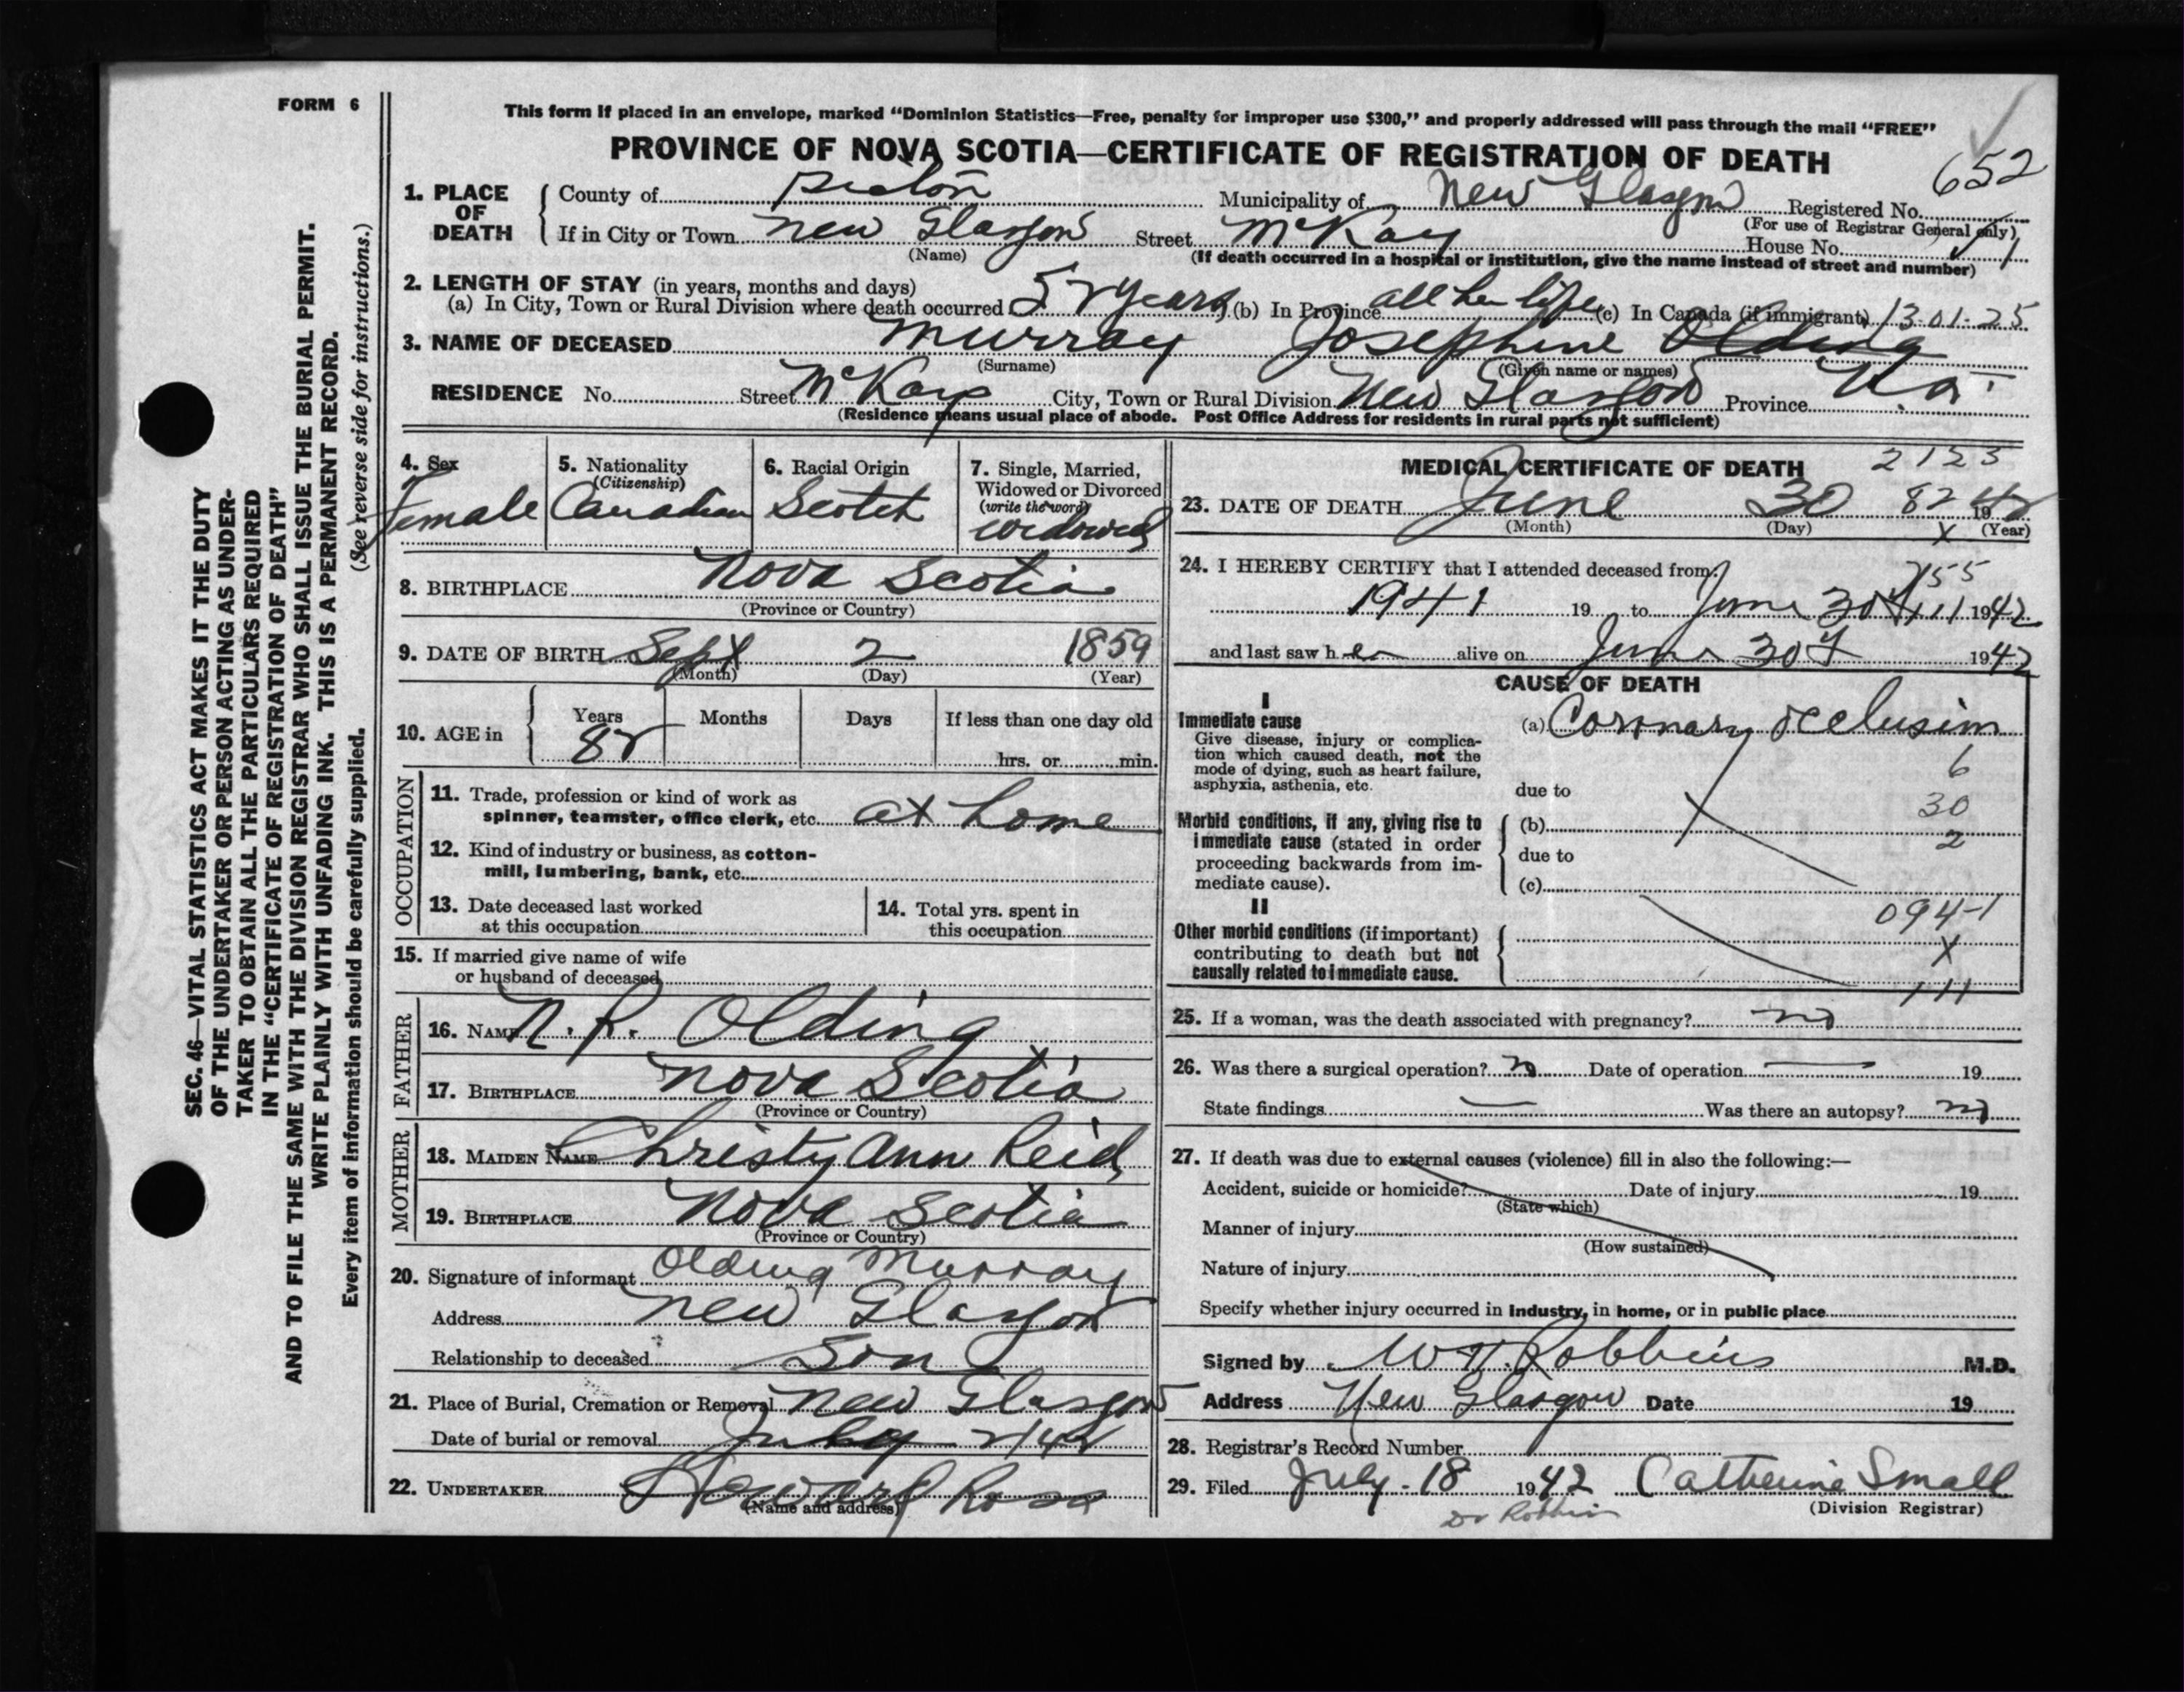 FORM 6
This form if placed in an envelope, marked “Dominion Statistics—Free, penalty for improper use $300,” and properly addressed will pass through the mail “FREE”
PROVINCE OF NOVA SCOTIA—CERTIFICATE OF REGISTRATION OF DEATH
652
1. PLACE OF DEATH County of Pictou Municipality of New Glasgow Registered No.
(For use of Registrar General only)
If in City or Town New Glasgow Street McKay House No.
(Name) (If death occurred in a hospital or institution, give the name instead of street and number)
2. LENGTH OF STAY (in years, months and days)
(a) In City, Town or Rural Division where death occurred 52 years (b) In Province all her life (c) In Canada (if immigrant) 13-01-25
3. NAME OF DECEASED Murray Josephine Olding
(Surname) (Given name or names)
RESIDENCE No. Street McKay City, Town or Rural Division New Glasgow Province N.S.
(Residence means usual place of abode. Post Office Address for residents in rural parts not sufficient)
4. Sex Female
5. Nationality (Citizenship) Canadian
6. Racial Origin Scotch
7. Single, Married, Widowed or Divorced (write the word) widowed
8. BIRTHPLACE Nova Scotia
(Province or Country)
9. DATE OF BIRTH Sept 2 1859
(Month) (Day) (Year)
10. AGE in Years Months Days If less than one day old
82 hrs. or min.
OCCUPATION
11. Trade, profession or kind of work as
spinner, teamster, office clerk, etc. at home
12. Kind of industry or business, as cotton-
mill, lumbering, bank, etc.
13. Date deceased last worked
at this occupation
14. Total yrs. spent in
this occupation
15. If married give name of wife
or husband of deceased
FATHER
16. NAME N. R. Olding
17. BIRTHPLACE Nova Scotia
(Province or Country)
MOTHER
18. MAIDEN NAME Christy Ann Reid
19. BIRTHPLACE Nova Scotia
(Province or Country)
20. Signature of informant Olding Murray
Address New Glasgow
Relationship to deceased Son
21. Place of Burial, Cremation or Removal New Glasgow
Date of burial or removal July 2/42
22. UNDERTAKER
(Name and address)
MEDICAL CERTIFICATE OF DEATH 2123
23. DATE OF DEATH June 30 82 1942
(Month) (Day) X (Year)
24. I HEREBY CERTIFY that I attended deceased from:
755
1941 19 to June 30 111 1942
and last saw her alive on June 30 1942
CAUSE OF DEATH
I
Immediate cause
Give disease, injury or complica-
tion which caused death, not the
mode of dying, such as heart failure,
asphyxia, asthenia, etc.
(a) Coronary occlusion
6
due to
30
Morbid conditions, if any, giving rise to
immediate cause (stated in order
proceeding backwards from im-
mediate cause).
(b)
2
due to
(c)
II
094-1
Other morbid conditions (if important)
contributing to death but not
causally related to immediate cause.
X
111
25. If a woman, was the death associated with pregnancy? no
26. Was there a surgical operation? no Date of operation — 19
State findings — Was there an autopsy? no
27. If death was due to external causes (violence) fill in also the following:—
Accident, suicide or homicide? Date of injury 19
(State which)
Manner of injury
(How sustained)
Nature of injury
Specify whether injury occurred in industry, in home, or in public place
Signed by W H Robbins M.D.
Address New Glasgow Date 19
28. Registrar's Record Number
29. Filed July-18 1942 Catherine Small
(Division Registrar)
Dr Robbins
SEC. 46—VITAL STATISTICS ACT MAKES IT THE DUTY
OF THE UNDERTAKER OR PERSON ACTING AS UNDER-
TAKER TO OBTAIN ALL THE PARTICULARS REQUIRED
IN THE “CERTIFICATE OF REGISTRATION OF DEATH”
AND TO FILE THE SAME WITH THE DIVISION REGISTRAR WHO SHALL ISSUE THE BURIAL PERMIT.
WRITE PLAINLY WITH UNFADING INK. THIS IS A PERMANENT RECORD.
Every item of information should be carefully supplied. (See reverse side for instructions.)